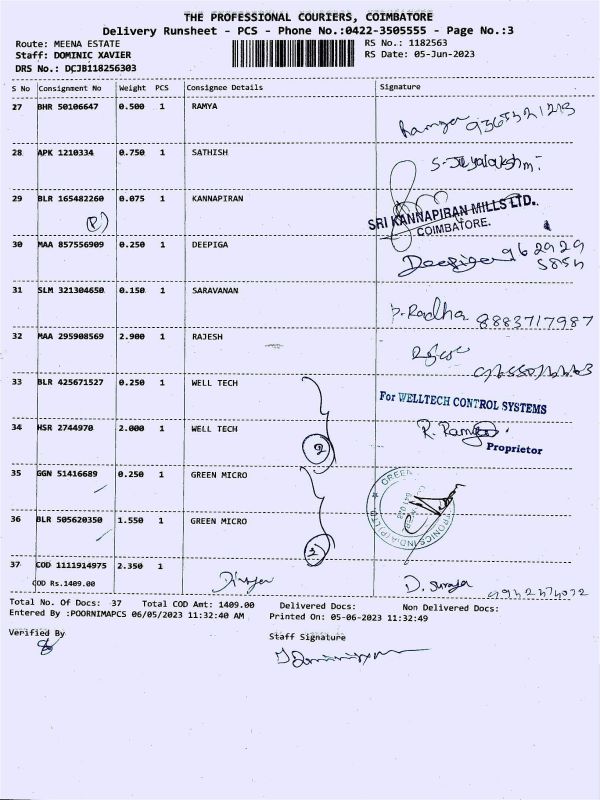 THE PROFESSIONAL COURIERS, COIMBATORE
Delivery Runsheet - PCS - Phone No.:0422-3505555 - Page No.:3
Route: MEENA ESTATE
RS No.: 1182563
Staff: DOMINIC XAVIER
RS Date: 05-Jun-2023
DRS No.: DCJB118256303
S No Consignment No Weight PCS Consignee Details Signature
27 BHR 50106647 0.500 1 RAMYA
28 APK 1210334 0.750 1 SATHISH
29 BLR 165482260 0.075 1 KANNAPIRAN
SRI KANNAPIRAN MILLS LTD.,
COIMBATORE.
30 MAA 857556909 0.250 1 DEEPIGA
Deepiga 962929
31 SLM 321304650 0.150 1 SARAVANAN
Radha 8883717987
32 MAA 295908569 2.900 1 RAJESH
33 BLR 425671527 0.250 1 WELL TECH
For WELLTECH CONTROL SYSTEMS
34 HSR 2744970 2.000 1 WELL TECH
2
Proprietor
35 GGN 51416689 0.250 1 GREEN MICRO
36 BLR 505620350 1.550 1 GREEN MICRO
2
37 COD 1111914975 2.350 1
COD Rs.1409.00
Total No. Of Docs: 37 Total COD Amt: 1409.00 Delivered Docs: Non Delivered Docs:
Entered By :POORNIMAPCS 06/05/2023 11:32:40 AM Printed On: 05-06-2023 11:32:49
Verified By
Staff Signature